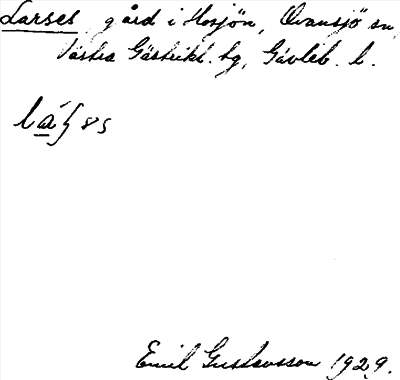 Larses, gård i Hosjön, Ovansjö sn,
Västra Gästrikl. hg, Gävleb. l.
Emil Gustavsson 1929.